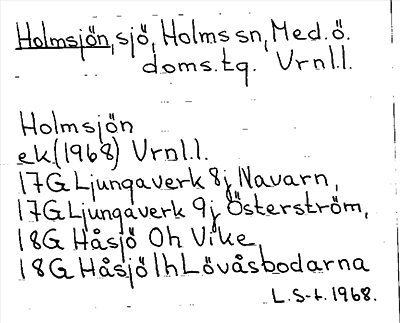 Holmsjön, sjö, Holms sn, Med.ö.
doms.tg. Vrnl.l.
Holmsjön
ek.(1968) Vrnl.l.
17G Ljungaverk 8j Navarn,
17G Ljungaverk 9j Österström,
18G Håsjö 0h Vike,
18G Håsjö 1h Lövåsbodarna
L.S-t. 1968.